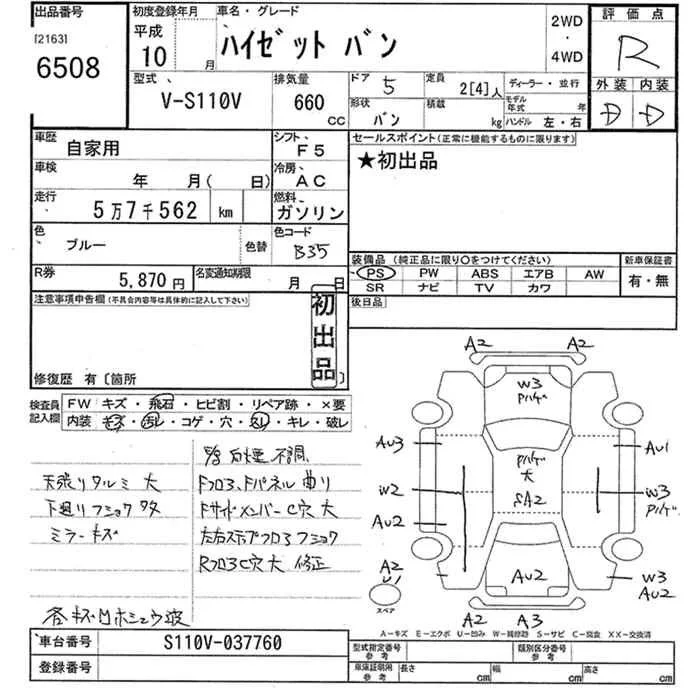 出品番号
[2163]
6508
初度登録年月
平成
10 月
車名・グレード
ハイゼット バン
2WD
・
4WD
評価点
R
外装 内装
D D
型式
V-S110V
排気量
660
CC
ドア 5
定員 2[4]人
ディーラー・並行
形状 バン
積載 kg
モデル年式 年
ハンドル 左・右
車歴
自家用
シフト
F5
車検
年 月( 日)
冷房
AC
走行
5万7千562 km
燃料
ガソリン
色
ブルー
色替
色コード
B35
R券
5,870円
名変通知期限
月 日
セールスポイント(正常に機能するものに限ります)
★初出品
装備品(純正品に限り○をつけてください)
PS PW ABS エアB AW
SR ナビ TV カワ
新車保証書
有・無
後日品
注意事項申告欄(不具合内容等は具体的に記入して下さい)
初出品
修復歴 有〔箇所 〕
検査員記入欄
FW キズ・飛石・ヒビ割・リペア跡・×要
内装 キズ・汚レ・コゲ・穴・欠リ・キレ・破レ
天張りタルミ 大
下廻りフショク 多
ミラーキズ
白煙 不調
Fフロア、Fパネル 曲り
Fサイドメンバー C穴 大
左右ステップフロアフショク
RフロアC穴 大 修正
A2 A2
W3
Pハゲ
AU3
AU1
Pハゲ
大
SA2
W2
W3
Pハゲ
AU2
A2
U1
スペア
AU2
W3
AU2
A2 A3
A－キズ E－エクボ U－凹み W－補修跡 S－サビ C－腐食 XX－交換済
車台番号
S110V-037760
登録番号
型式指定番号
参考
類別区分番号
参考
車庫証明用
参考
長さ cm
幅 cm
高さ cm